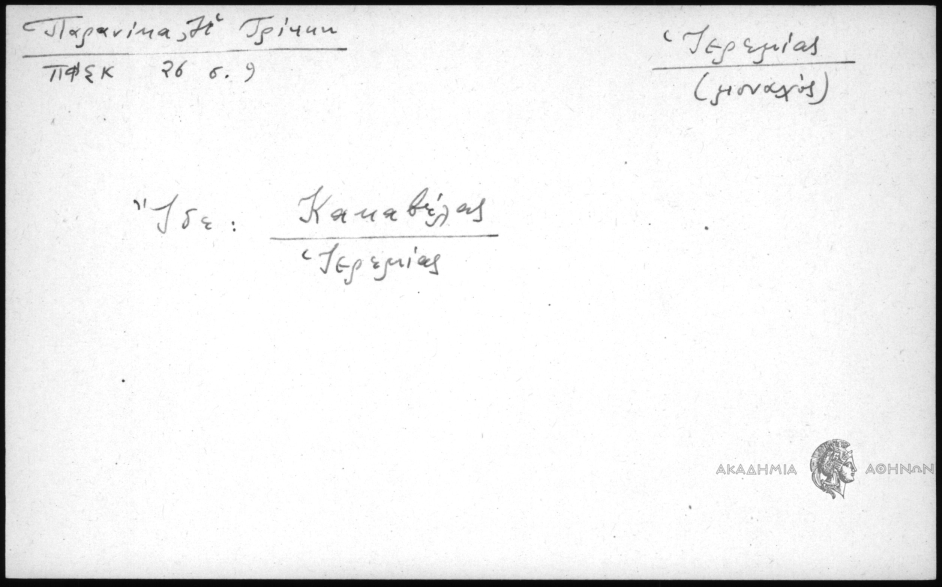 Παρανίκα, Ἡ Τρίκκη
ΠΦΣΚ 26 σ. 9
Ἱερεμίας
(μοναχός)
Ἴδε: Κακαβέλας
Ἱερεμίας
ΑΚΑΔΗΜΙΑ ΑΘΗΝΩΝ